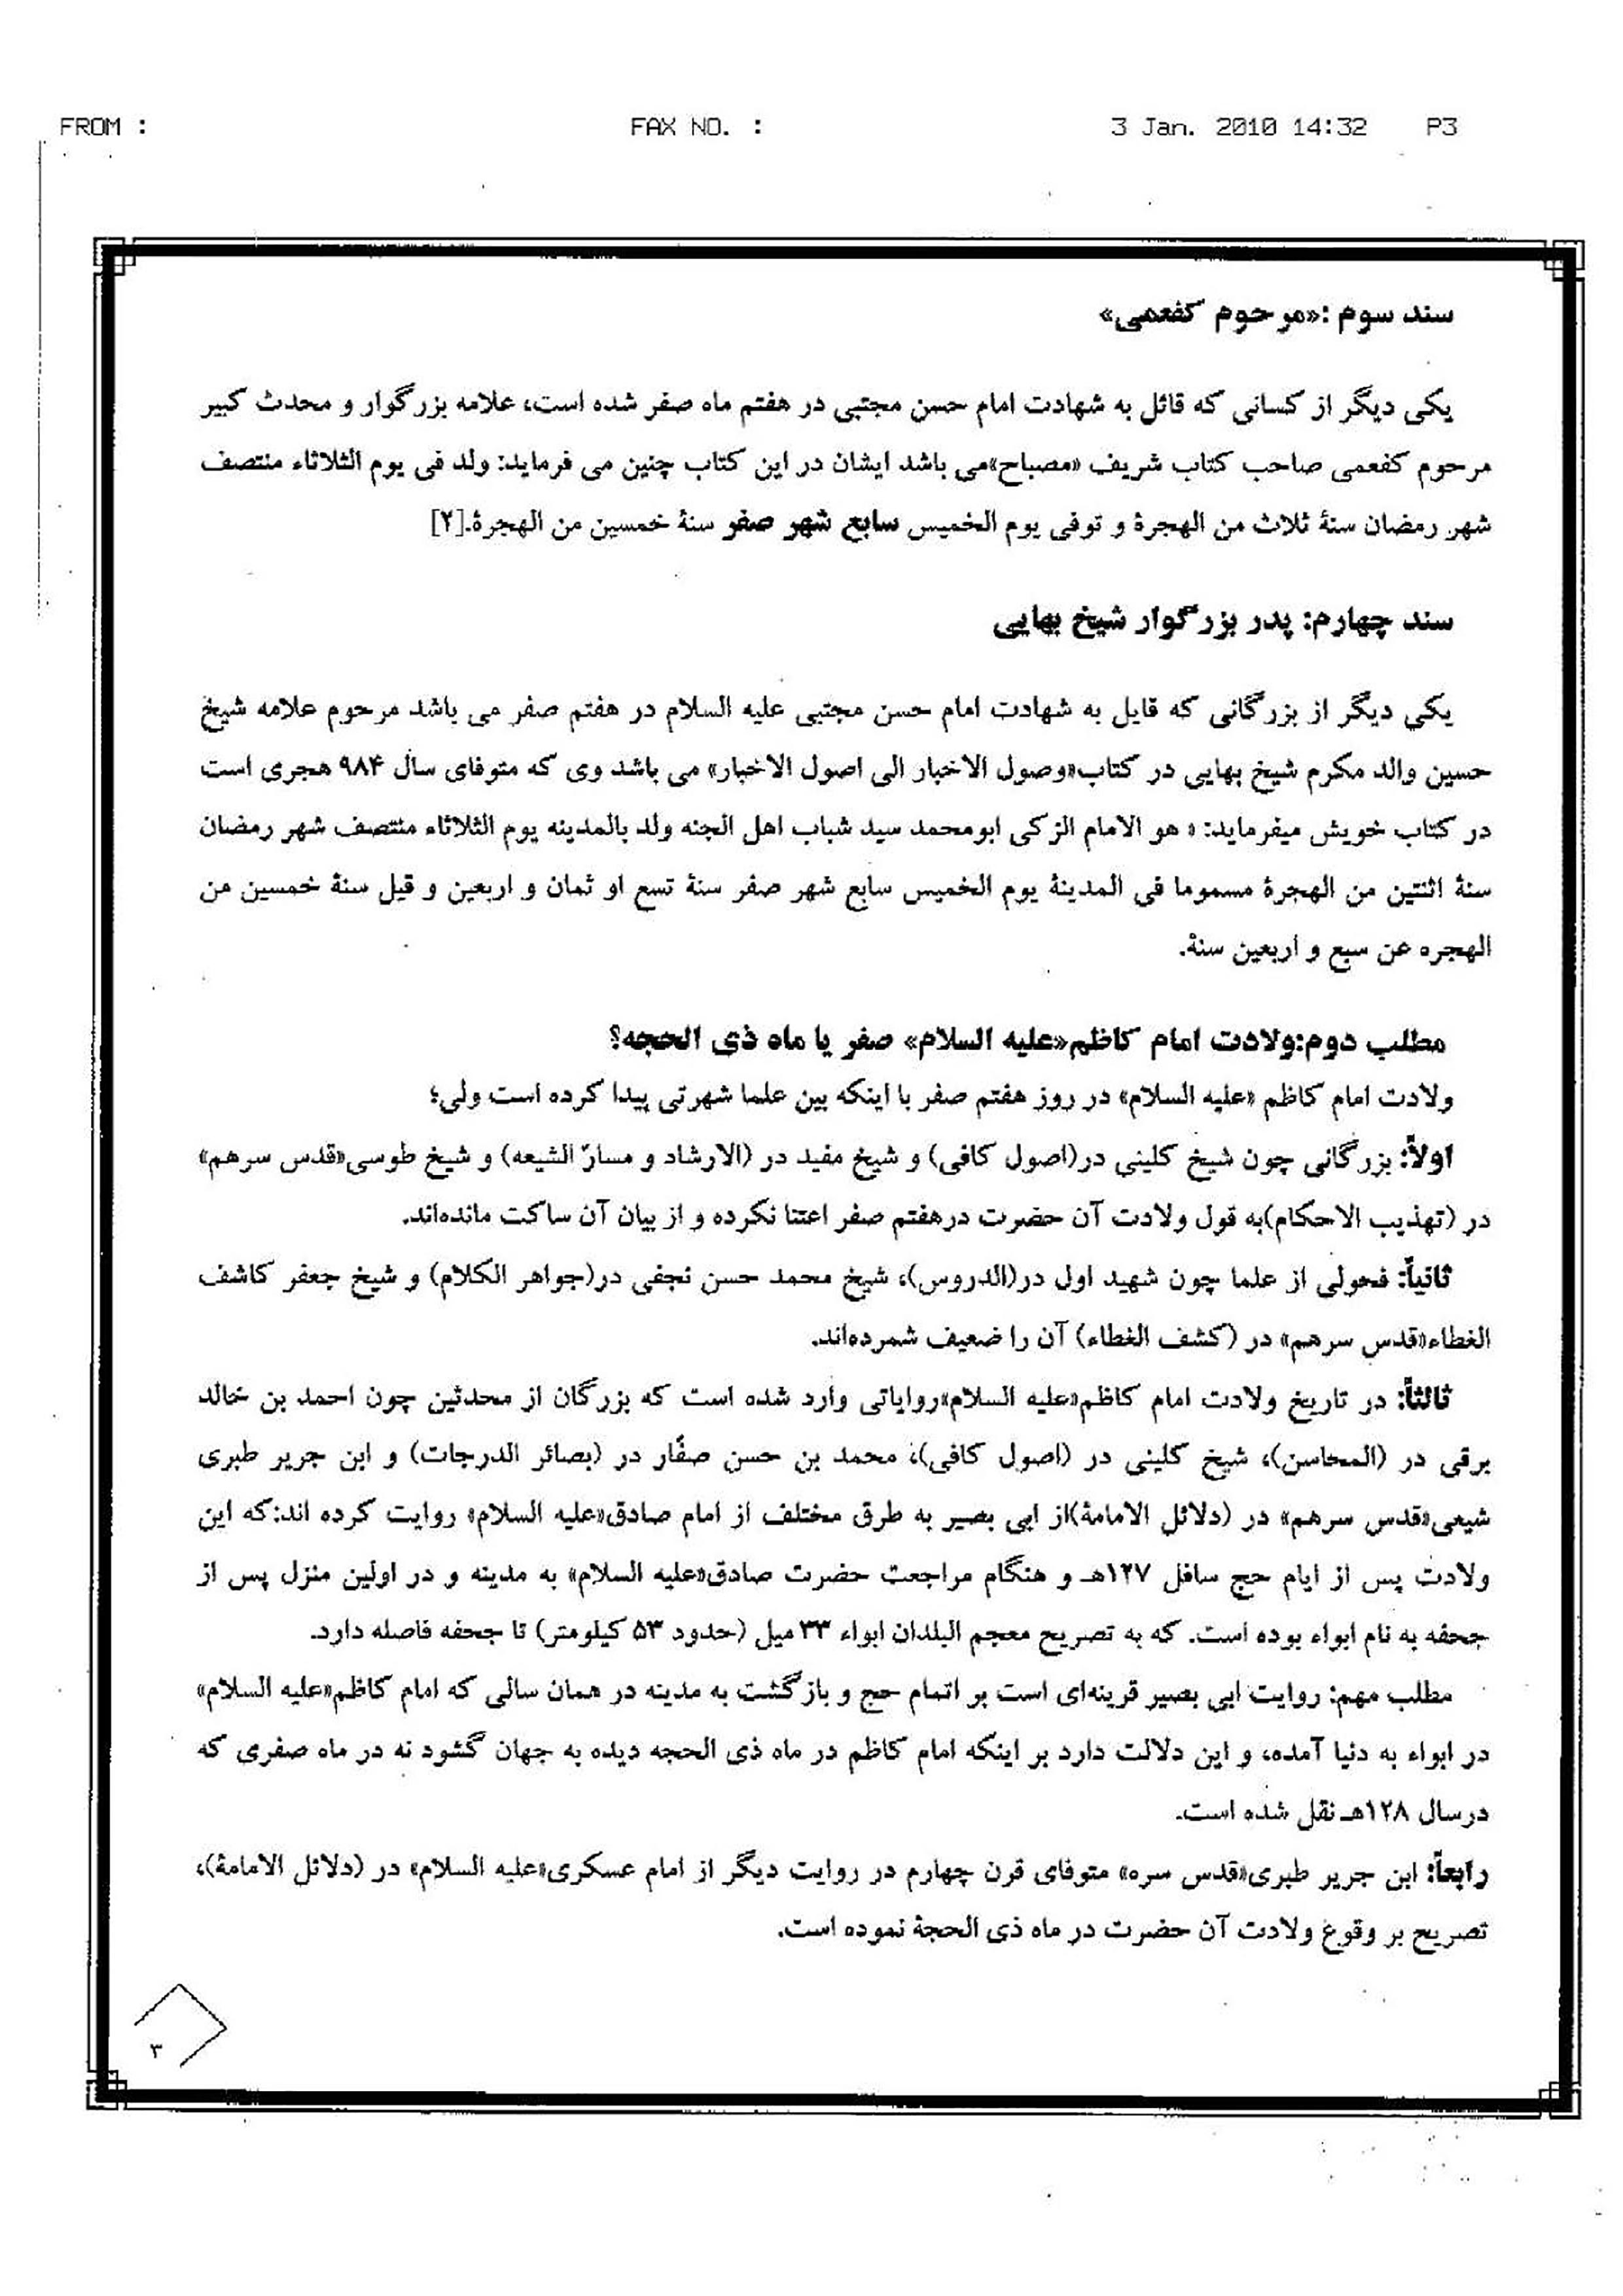 FROM : FAX NO. : 3 Jan. 2010 14:32 P3
سند سوم :«مرحوم کفعمی»
یکی دیگر از کسانی که قائل به شهادت امام حسن مجتبی در هفتم ماه صفر شده است، علامه بزرگوار و محدث کبیر
مرحوم کفعمی صاحب کتاب شریف «مصباح»می باشد ایشان در این کتاب چنین می فرماید: ولد فی یوم الثلاثاء منتصف
شهر رمضان سنة ثلاث من الهجرة و توفی یوم الخمیس سابع شهر صفر سنة خمسین من الهجرة.[۲]
سند چهارم: پدر بزرگوار شیخ بهایی
یکی دیگر از بزرگانی که قایل به شهادت امام حسن مجتبی علیه السلام در هفتم صفر می باشد مرحوم علامه شیخ
حسین والد مکرم شیخ بهایی در کتاب«وصول الاخیار الی اصول الاخبار» می باشد وی که متوفای سال ۹۸۴ هجری است
در کتاب خویش میفرماید: « هو الامام الزکی ابومحمد سید شباب اهل الجنه ولد بالمدینه یوم الثلاثاء منتصف شهر رمضان
سنة اثنتین من الهجرة مسموما فی المدینة یوم الخمیس سابع شهر صفر سنة تسع او ثمان و اربعین و قیل سنة خمسین من
الهجره عن سبع و اربعین سنة.
مطلب دوم:ولادت امام کاظم«علیه السلام» صفر یا ماه ذی الحجه؟
ولادت امام کاظم «علیه السلام» در روز هفتم صفر با اینکه بین علما شهرتی پیدا کرده است ولی؛
اولاً: بزرگانی چون شیخ کلینی در(اصول کافی) و شیخ مفید در (الارشاد و مسارّ الشیعه) و شیخ طوسی«قدس سرهم»
در (تهذیب الاحکام)به قول ولادت آن حضرت درهفتم صفر اعتنا نکرده و از بیان آن ساکت مانده‌اند.
ثانیاً: فحولی از علما چون شهید اول در(الدروس)، شیخ محمد حسن نجفی در(جواهر الکلام) و شیخ جعفر کاشف
الغطاء«قدس سرهم» در (کشف الغطاء) آن را ضعیف شمرده‌اند.
ثالثاً: در تاریخ ولادت امام کاظم«علیه السلام»روایاتی وارد شده است که بزرگان از محدثین چون احمد بن خالد
برقی در (المحاسن)، شیخ کلینی در (اصول کافی)، محمد بن حسن صفّار در (بصائر الدرجات) و ابن جریر طبری
شیعی«قدس سرهم» در (دلائل الامامة)از ابی بصیر به طرق مختلف از امام صادق«علیه السلام» روایت کرده اند:که این
ولادت پس از ایام حج سافل ۱۲۷هـ و هنگام مراجعت حضرت صادق«علیه السلام» به مدینه و در اولین منزل پس از
جحفه به نام ابواء بوده است. که به تصریح معجم البلدان ابواء ۳۳ میل (حدود ۵۳ کیلومتر) تا جحفه فاصله دارد.
مطلب مهم: روایت ابی بصیر قرینه‌ای است بر اتمام حج و بازگشت به مدینه در همان سالی که امام کاظم«علیه السلام»
در ابواء به دنیا آمده، و این دلالت دارد بر اینکه امام کاظم در ماه ذی الحجه دیده به جهان گشود نه در ماه صفری که
درسال ۱۲۸هـ نقل شده است.
رابعاً: ابن جریر طبری«قدس سره» متوفای قرن چهارم در روایت دیگر از امام عسکری«علیه السلام» در (دلائل الامامة)،
تصریح بر وقوع ولادت آن حضرت در ماه ذی الحجة نموده است.
۳